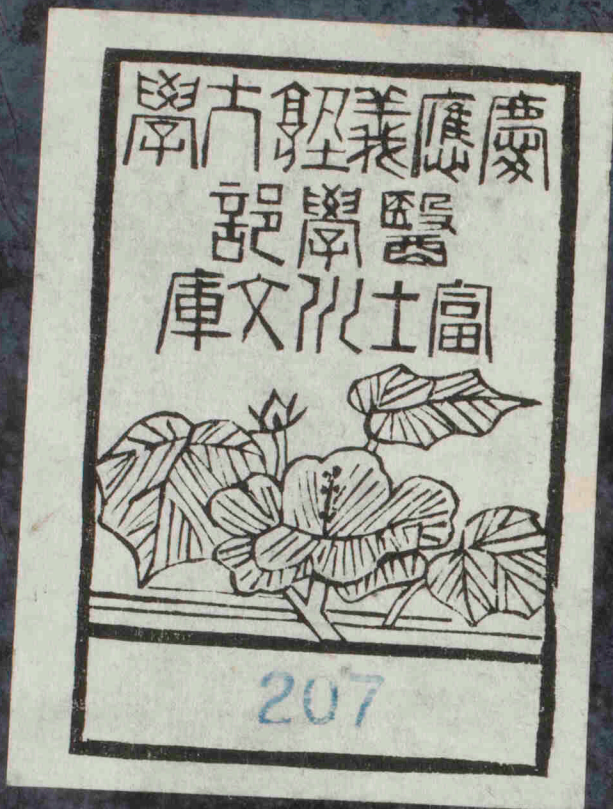 慶應義塾大學
醫學部
富士川文庫
207